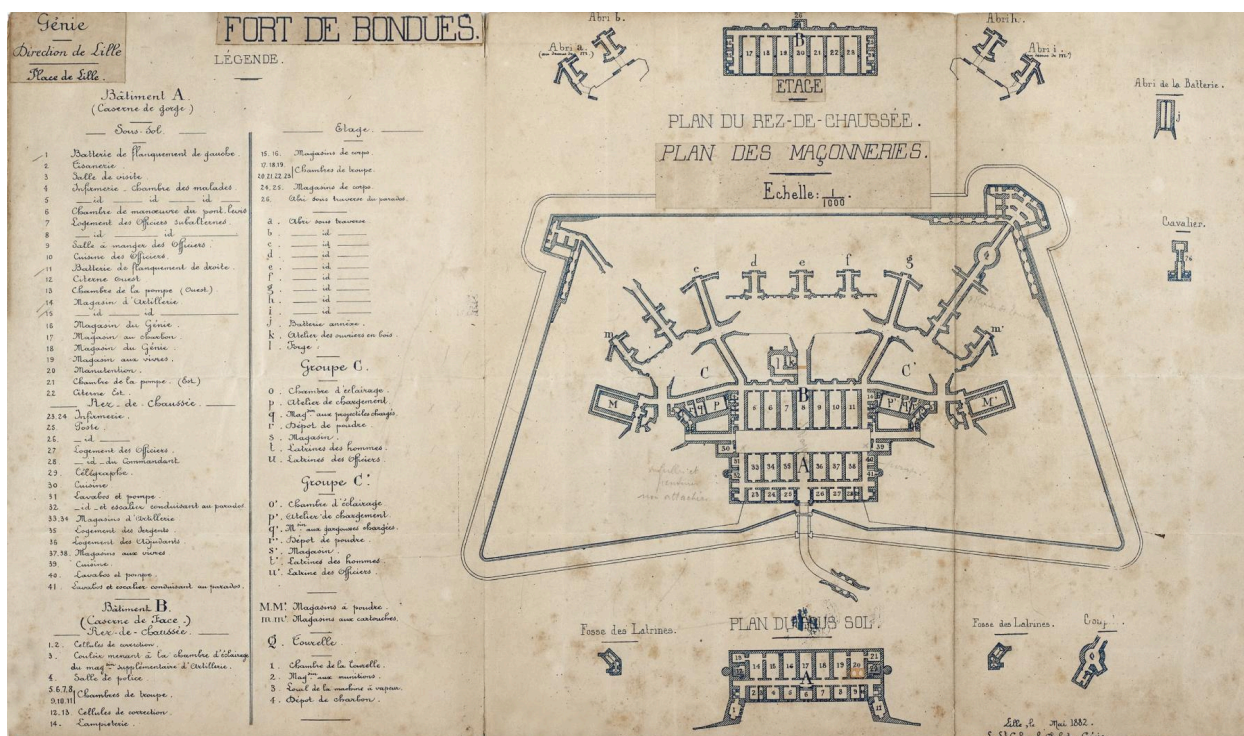 Génie
Direction de Lille
Place de Lille.
FORT DE BONDUES.
LÉGENDE.
Bâtiment A.
(Caserne de gorge)
Sous-Sol.
1 Batterie de flanquement de gauche.
2. Tisanerie.
3 Salle de visite
4 Infirmerie - Chambre des malades.
5 id id id
6 Chambre de manœuvre du pont-levis
7 Logement des Officiers subalternes.
8 id id
9 Salle à manger des Officiers.
10 Cuisine des Officiers.
11 Batterie de flanquement de droite.
12 Citerne Ouest.
13 Chambre de la pompe (Ouest)
14 Magasin d'Artillerie
15 id id
16 Magasin du Génie.
17 Magasin au charbon
18 Magasin du Génie.
19 Magasin aux vivres.
20 Manutention.
21 Chambre de la pompe. (Est.)
22 Citerne Est.
Rez-de-Chaussée.
23.24. Infirmerie.
25. Poste.
26. id
27 Logement des Officiers
28 id du Commandant
29 Télégraphe.
30 Cuisine
31 Lavabos et pompe.
32 id et escalier conduisant au parados
33.34 Magasins d'Artillerie
35 Logement des Sergents
36 Logement des Adjudants
37.38. Magasins aux vivres
39. Cuisine.
40. Lavabos et pompe.
41. Lavabos et escalier conduisant au parados.
Bâtiment B.
(Caserne de Face.)
Rez-de-chaussée.
1.2. Cellules de correction.
3. Couloir menant à la chambre d'éclairage
du mag.sin supplémentaire d'Artillerie.
4. Salle de police
5.6.7.8
9.10.11 Chambres de troupe.
12.13. Cellules de correction.
14. Lampisterie.
Etage.
15.16. Magasins de corps.
17.18.19
20.21.22.23 Chambres de troupe.
24.25. Magasins de corps.
26. Abri sous traverse du parados.
a. Abri sous traverse
b. id
c. id
d id
e. id
f. id
g. id
h. id
i. id
j. Batterie annexe.
k. Atelier des ouvriers en bois
l. Forge.
Groupe C.
o. Chambre d'éclairage
p. Atelier de chargement
q. Mag.sin aux projectiles chargés.
r. Dépot de poudre
s. Magasin.
t. Latrines des hommes.
u. Latrines des Officiers
Groupe C'.
o'. Chambre d'éclairage
p'. Atelier de chargement
q'. M.sin aux gargousses chargées.
r'. Dépot de poudre
s'. Magasin.
t'. Latrines des hommes
u'. Latrine des Officiers.
M.M'. Magasins à poudre.
m.m'. Magasins aux cartouches.
Q. Tourelle
1. Chambre de la tourelle
2. Mag.sin aux munitions.
3. Local de la machine à vapeur.
4. Dépot de charbon.
Abri b.
Abri a.
Abri h.
Abri i.
26
B
17 18 19 20 21 22 23
ETAGE
PLAN DU REZ-DE-CHAUSSÉE.
PLAN DES MAÇONNERIES.
Echelle: 1/1000
Abri de la Batterie.
j
Cavalier.
c d e f g
m m'
l k
C C'
B
M M'
q P P' q'
5 6 7 8 9 10 11
30 39
A
33 34 35 36 37 38
23 24 25 26 27 28
Fosse des Latrines.
PLAN DU SOUS SOL.
Fosse des Latrines.
14 15 16 17 18 19 20
A
2 3 4 5 6 7 8 9
Lille, le Mai 1882.